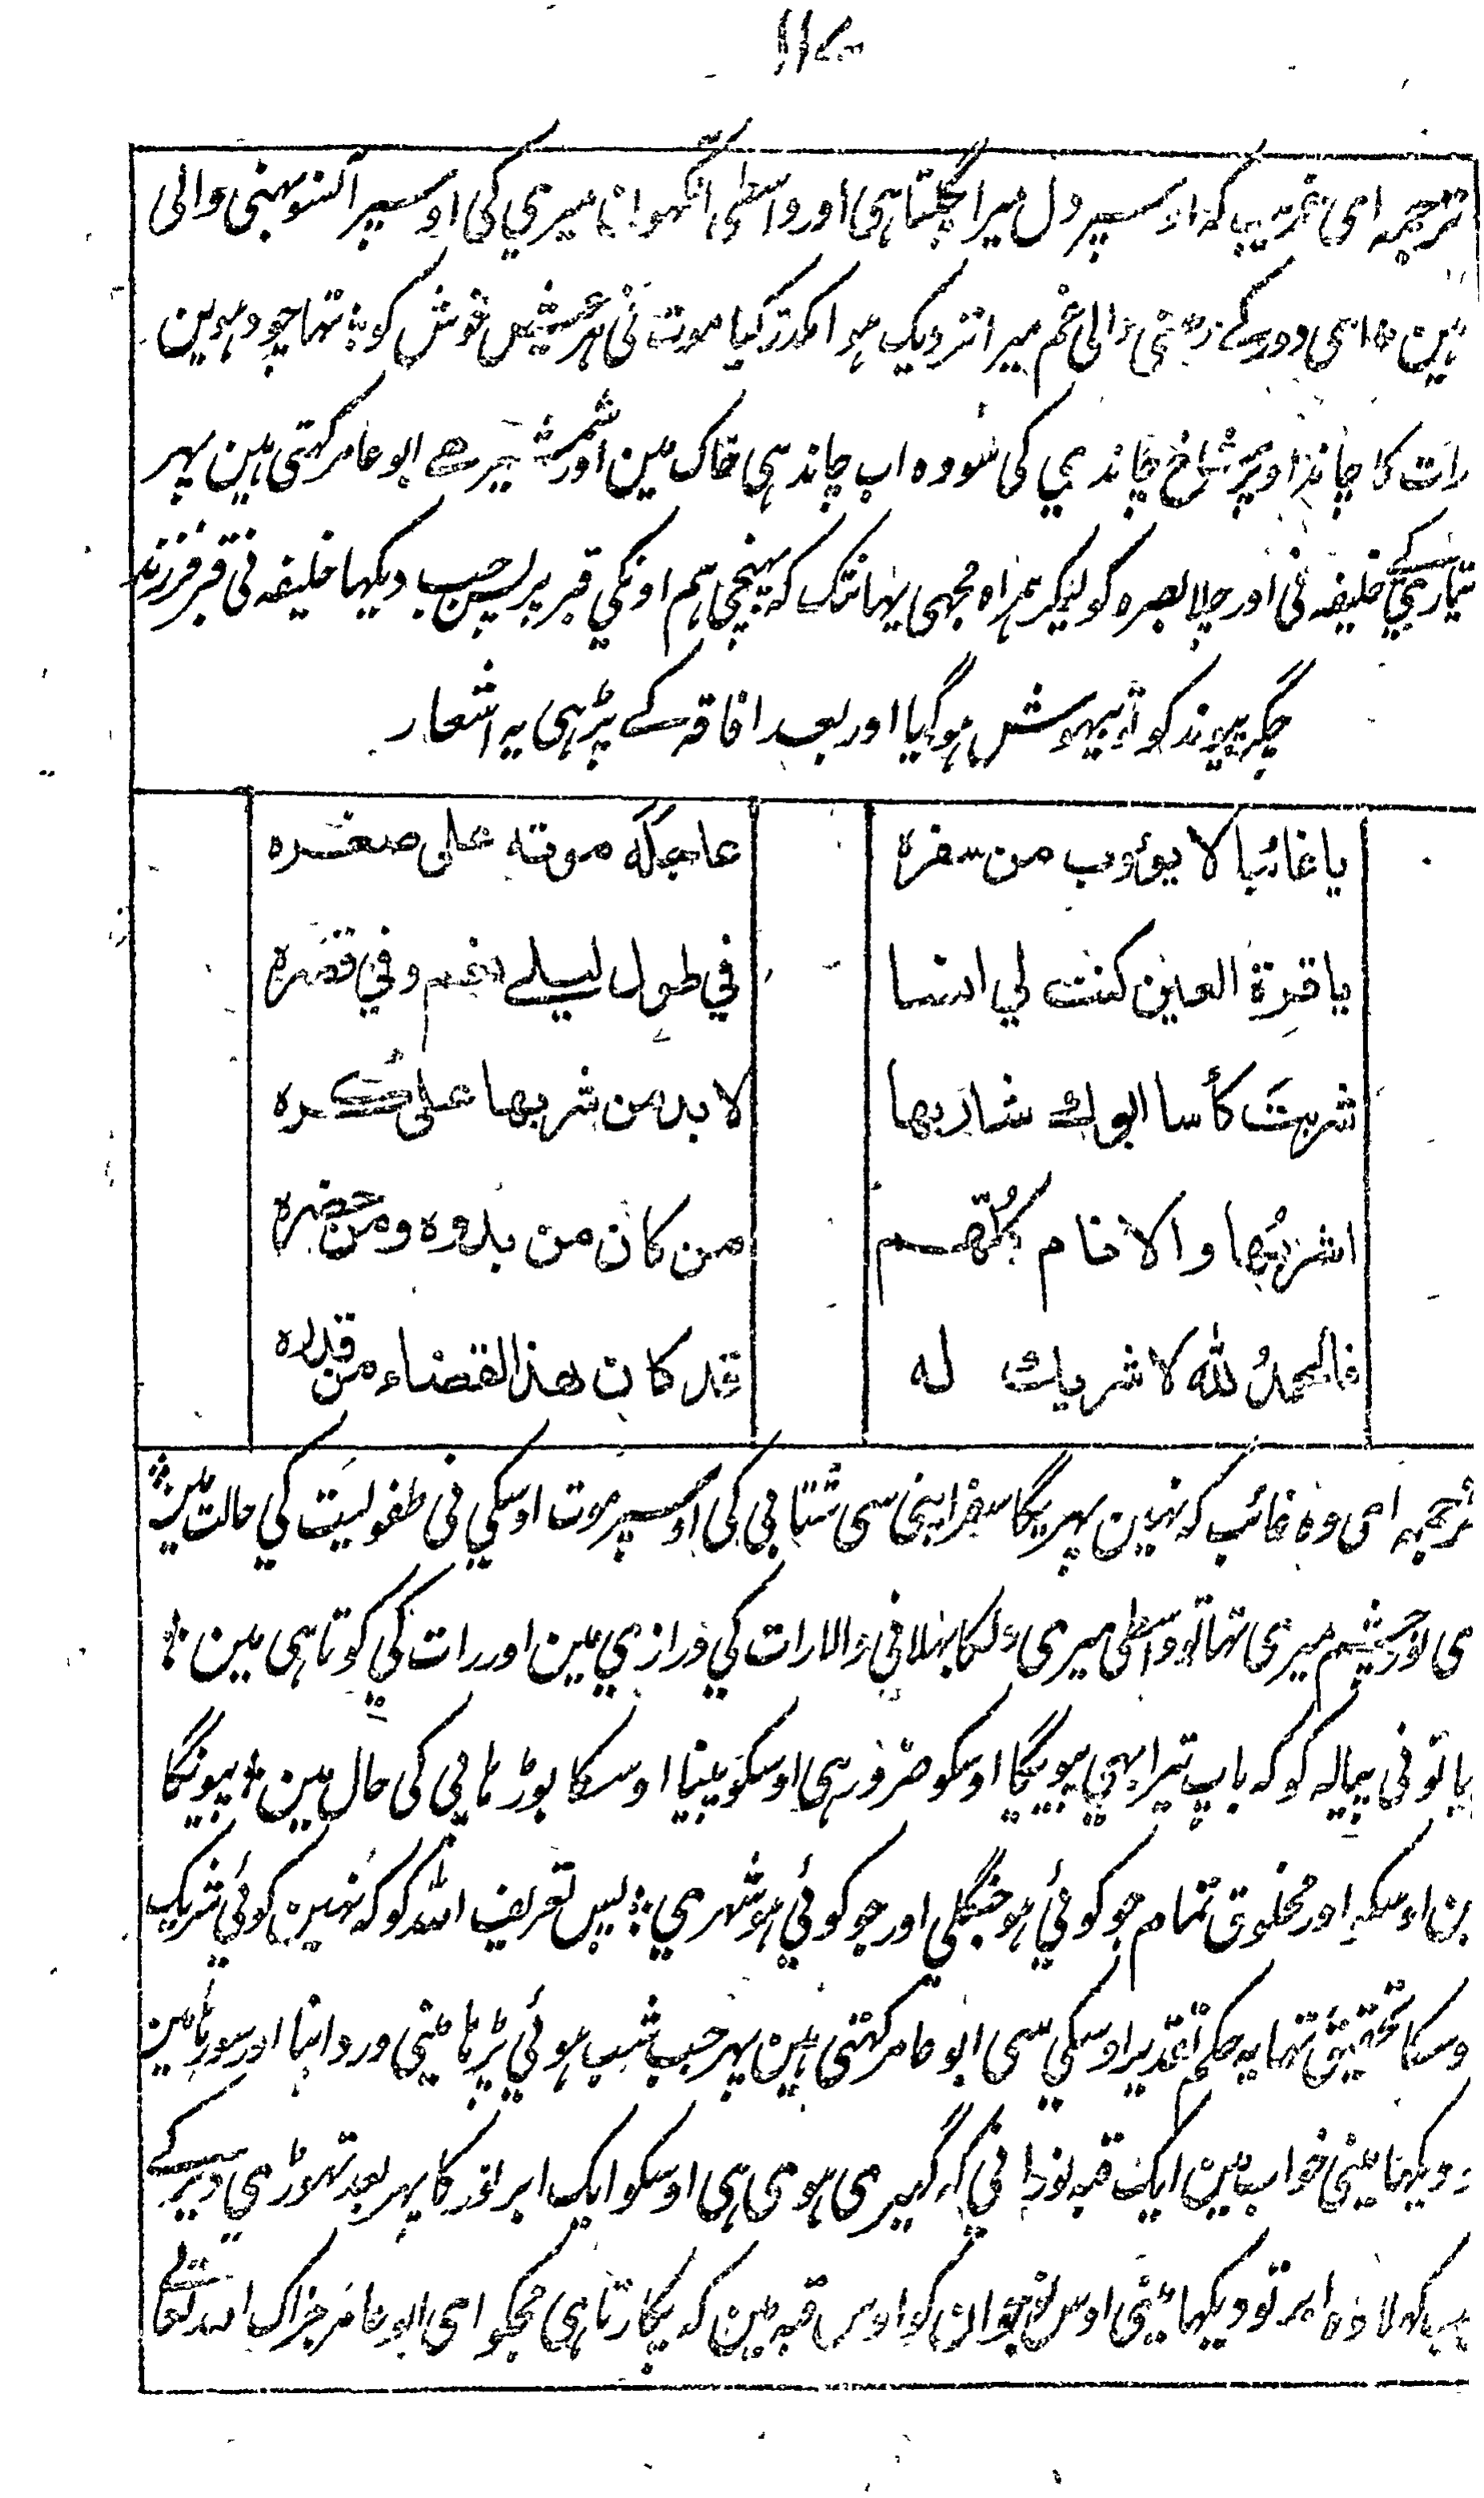 ۱۱۷
ترجمہ ای غریب کہ اوسپر دل میرا گلتا ہی اور واسطی انکھوں میری کی اوسپر آنسو بہنی والی
ہین ای دور کے رہنی والی غم میرا نزدیک ہوا مکدر کیا موت نی ہر عیش خوش کو تھا چودہوین
رات کا چاند اوپر شاخ چاندی کی سو وہ اب چاند ہی خاک مین اور ہے ابو عامر کہتی ہین پہر
تیاری کے خلیفہ نی اور چلا بصرہ کو لیکر ہمراہ مجھی یہانتک کہ پہنچی ہم اونکی قبر پر پس جب دیکہا خلیفہ نی قبر فرزند
جگر پیوند کو تو بیہوش ہو گیا اور بعد افاقہ کے پڑہی یہ اشعار
یا غائبا لا یؤوب من سفرہ عاجلہ موتہ علی صغرہ
یا قرة العین کنت لي انسا في طول لیلے نعم و في قصرہ
شربتَ کأسا ابوك شاربها لا بد من شربها علی کُبرہ
اشربُها و الانام کُلّهم من کان من بدوہ و من حضرہ
فالحمدُ للہ لا شریك له قد کان هذا القضاء من قدرہ
ترجمہ ای وہ غائب کہ نہین پہریگا سفر اپنی سی شتابی کی اوسپر موت اوسکی نی طفولیت کی حالت مین
ی نور چشم میری تہا تو واسطی میری دلکا بہلانی والا رات کی درازی مین اور رات کی کوتاہی مین
یا تونی پیالہ کو کہ باپ تیرا بہی پیویگا اوسکو ضرور ہی اوسکو پینا اوسکا بوڑہاپی کی حال مین پیونگا
ین اوسکو اور مخلوق تمام جو کوئی ہو جنگلی اور جو کوئی ہو شہری پس تعریف اللہ کو کہ نہین کوئی شریک
وسکا تحقیق تہا یہ حکم تقدیر اوسکی سی ابو عامر کہتی ہین پہر جب شب ہوئی پڑہا مینی ورد اپنا اور سو رہا مین
دیکہا مینی خواب مین ایک قبہ نورانی کہ گہیری ہوی ہی اوسکو ایک ابر نور کا پہر بعد تہوڑی دیر کے
کہلا وہ ابر تو دیکہا مینی اوس نوجوان کو اوس قبہ مین کہ پکارتا ہی مجکو ای ابو عامر جزاک اللہ تعالے